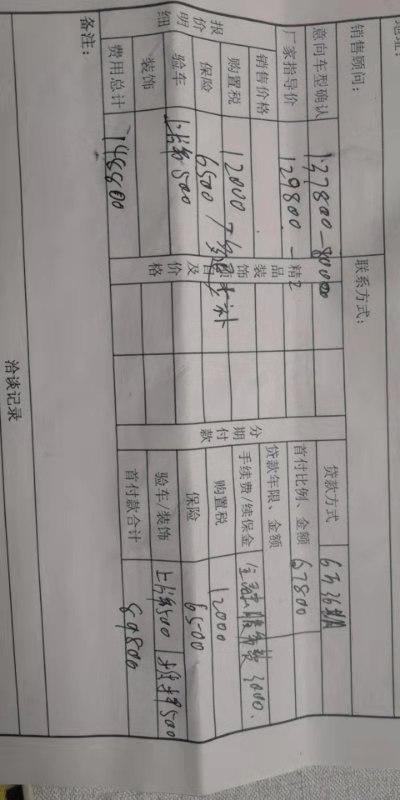 地址:
销售顾问:
联系方式:
意向车型确认 137800-8000
贷款方式 6万36期
厂家指导价 129800 -
首付比例、金额 67800
销售价格
贷款年限、金额
购置税 12000
手续费/续保金 金融服务费 3000、
保险 6500 多退少补
购置税 12000
验车 上牌 500
保险 6500
装饰
验车/装饰 上牌500 抵押500
费用总计 148800
首付款合计 89800
报价明细
分期付款
备注:
洽谈记录